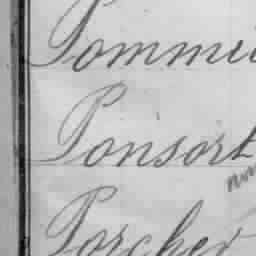 Pommei
Ponsort
Porcher